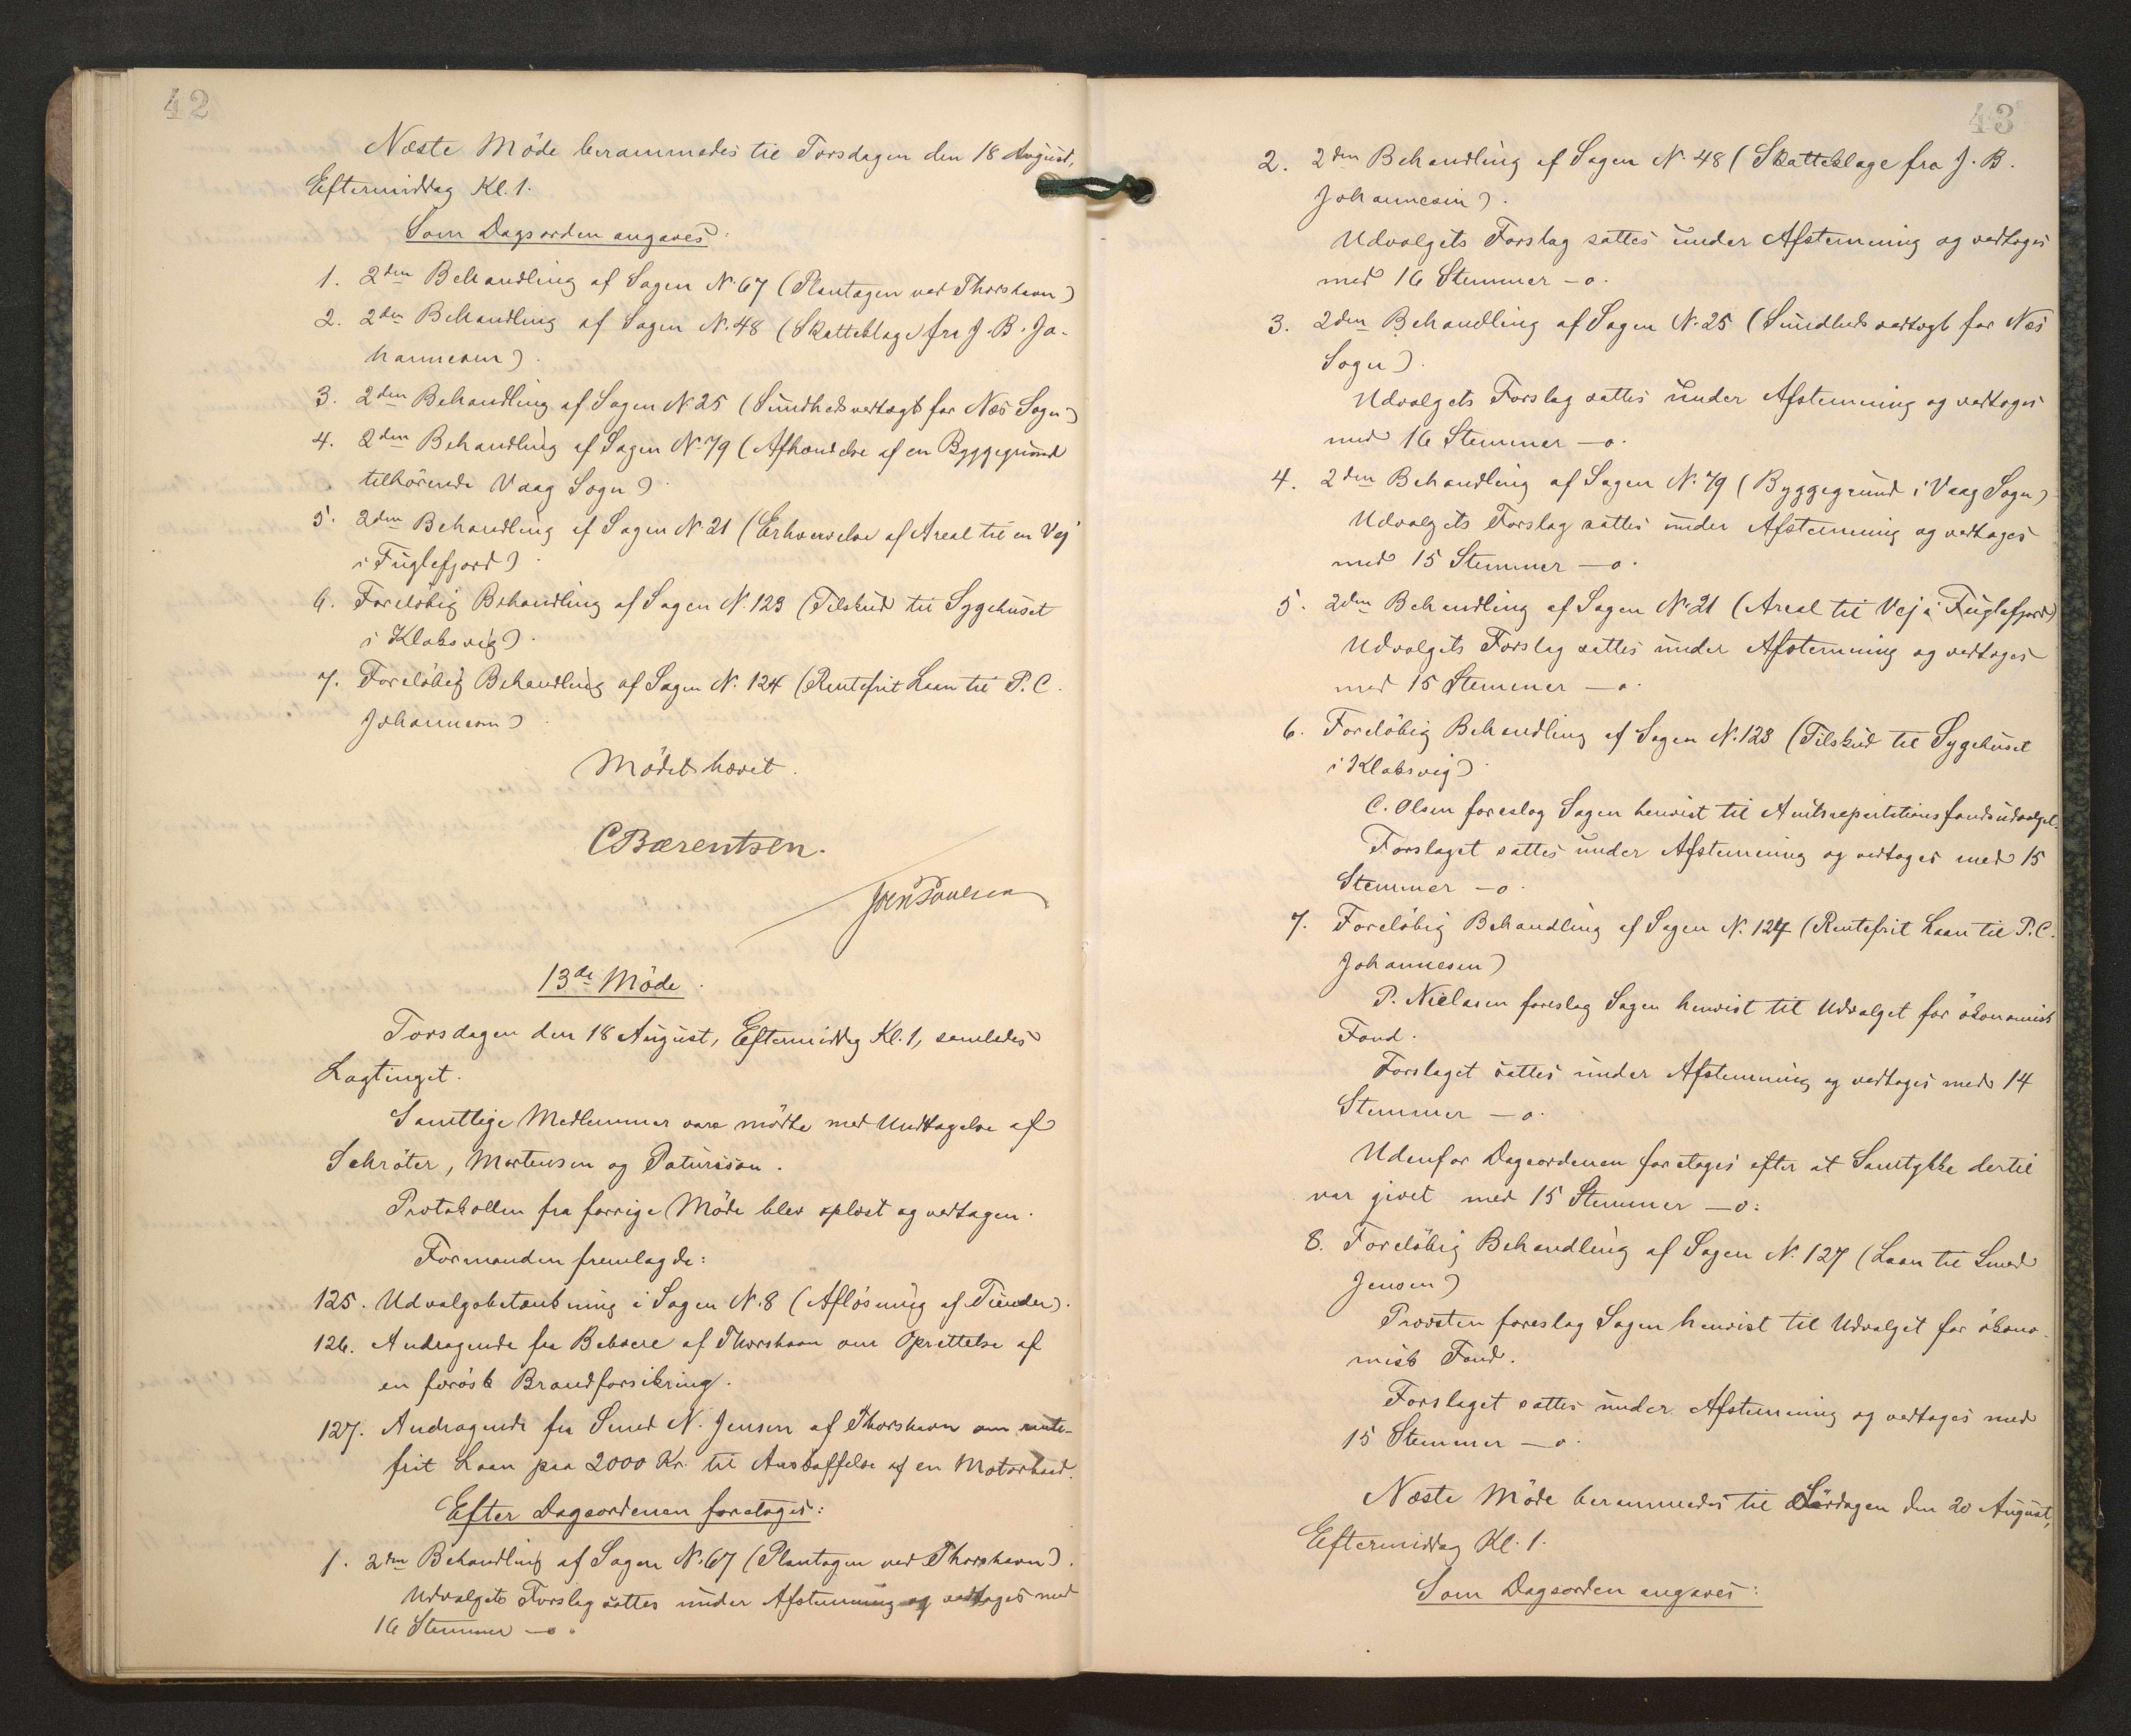 42
Næste Möde berammedes til Torsdagen den 18 August,
Eftermiddag Kl. 1.
Som Dagsorden angaves:
1. 2den Behandling af Sagen N. 67 (Plantagen ved Thorshavn)
2. 2den Behandling af Sagen N. 48 (Skatteklage fra J. B. Jo-
hannesen).
3. 2den Behandling af Sagen N. 25 (Sundhedsvedtægt for Nes Sogn)
4. 2den Behandling af Sagen N. 79 (Afhændelse af en Byggegrund
tilhörende Vaag Sogn).
5. 2den Behandling af Sagen N. 21 (Erhvervelse af Areal til en Vej
i Fuglefjord).
6. Forelöbig Behandling af Sagen N. 123 (Tilskud til Sygehuset
i Klaksvig).
7. Forelöbig Behandling af Sagen N. 124 (Rentefrit Laan til P. C.
Johannesen).
Mödet hævet.
C Bærentsen.
Joen Poulsen
13de Möde.
Torsdagen den 18 August, Eftermiddag Kl. 1, samledes
Lagtinget.
Samtlige Medlemmer vare mödte med Undtagelse af
Schröter, Mortensen og Patursson.
Protokollen fra forrige Möde blev oplæst og vedtagen.
Formanden fremlagde:
125. Udvalgsbetænkning i Sagen N. 8 (Aflösning af Tiender).
126. Andragende fra Beboere af Thorshavn om Oprettelse af
en færösk Brandforsikring.
127. Andragende fra Smed N. Jensen af Thorshavn om rente-
frit Laan paa 2000 Kr. til Anskaffelse af en Motorbaad.
Efter Dagsordenen foretoges:
1. 2den Behandling af Sagen N. 67 (Plantagen ved Thorshavn).
Udvalgets Forslag sattes under Afstemning og vedtoges med
16 Stemmer —o.
43
2. 2den Behandling af Sagen N. 48 (Skatteklage fra J. B.
Johannesen).
Udvalgets Forslag sattes under Afstemning og vedtoges
med 16 Stemmer —o.
3. 2den Behandling af Sagen N. 25 (Sundhedsvedtægt for Nes
Sogn).
Udvalgets Forslag sattes under Afstemning og vedtoges
med 16 Stemmer —o.
4. 2den Behandling af Sagen N. 79 (Byggegrund i Vaag Sogn)
Udvalgets Forslag sattes under Afstemning og vedtoges
med 15 Stemmer —o.
5. 2den Behandling af Sagen N. 21 (Areal til Vej i Fuglefjord)
Udvalgets Forslag sattes under Afstemning og vedtoges
med 15 Stemmer —o.
6. Forelöbig Behandling af Sagen N. 123 (Tilskud til Sygehuset
i Klaksvig).
C. Olsen foreslog Sagen henvist til Amtsrepartitionsfondsudvalget.
Forslaget sattes under Afstemning og vedtoges med 15
Stemmer —o.
7. Forelöbig Behandling af Sagen N. 124 (Rentefrit Laan til P. C.
Johannesen)
P. Nielasen foreslog Sagen henvist til Udvalget for ökonomisk
Fond.
Forslaget sattes under Afstemning og vedtoges med 14
Stemmer —o.
Udenfor Dagsordenen foretoges efter at Samtykke dertil
var givet med 15 Stemmer —o:
8. Forelöbig Behandling af Sagen N. 127 (Laan til Smed
Jensen)
Provsten foreslog Sagen henvist til Udvalget for ökono-
misk Fond.
Forslaget sattes under Afstemning og vedtoges med
15 Stemmer —o.
Næste Möde berammedes til Lördagen den 20 August,
Eftermiddag Kl. 1.
Som Dagsorden angaves: